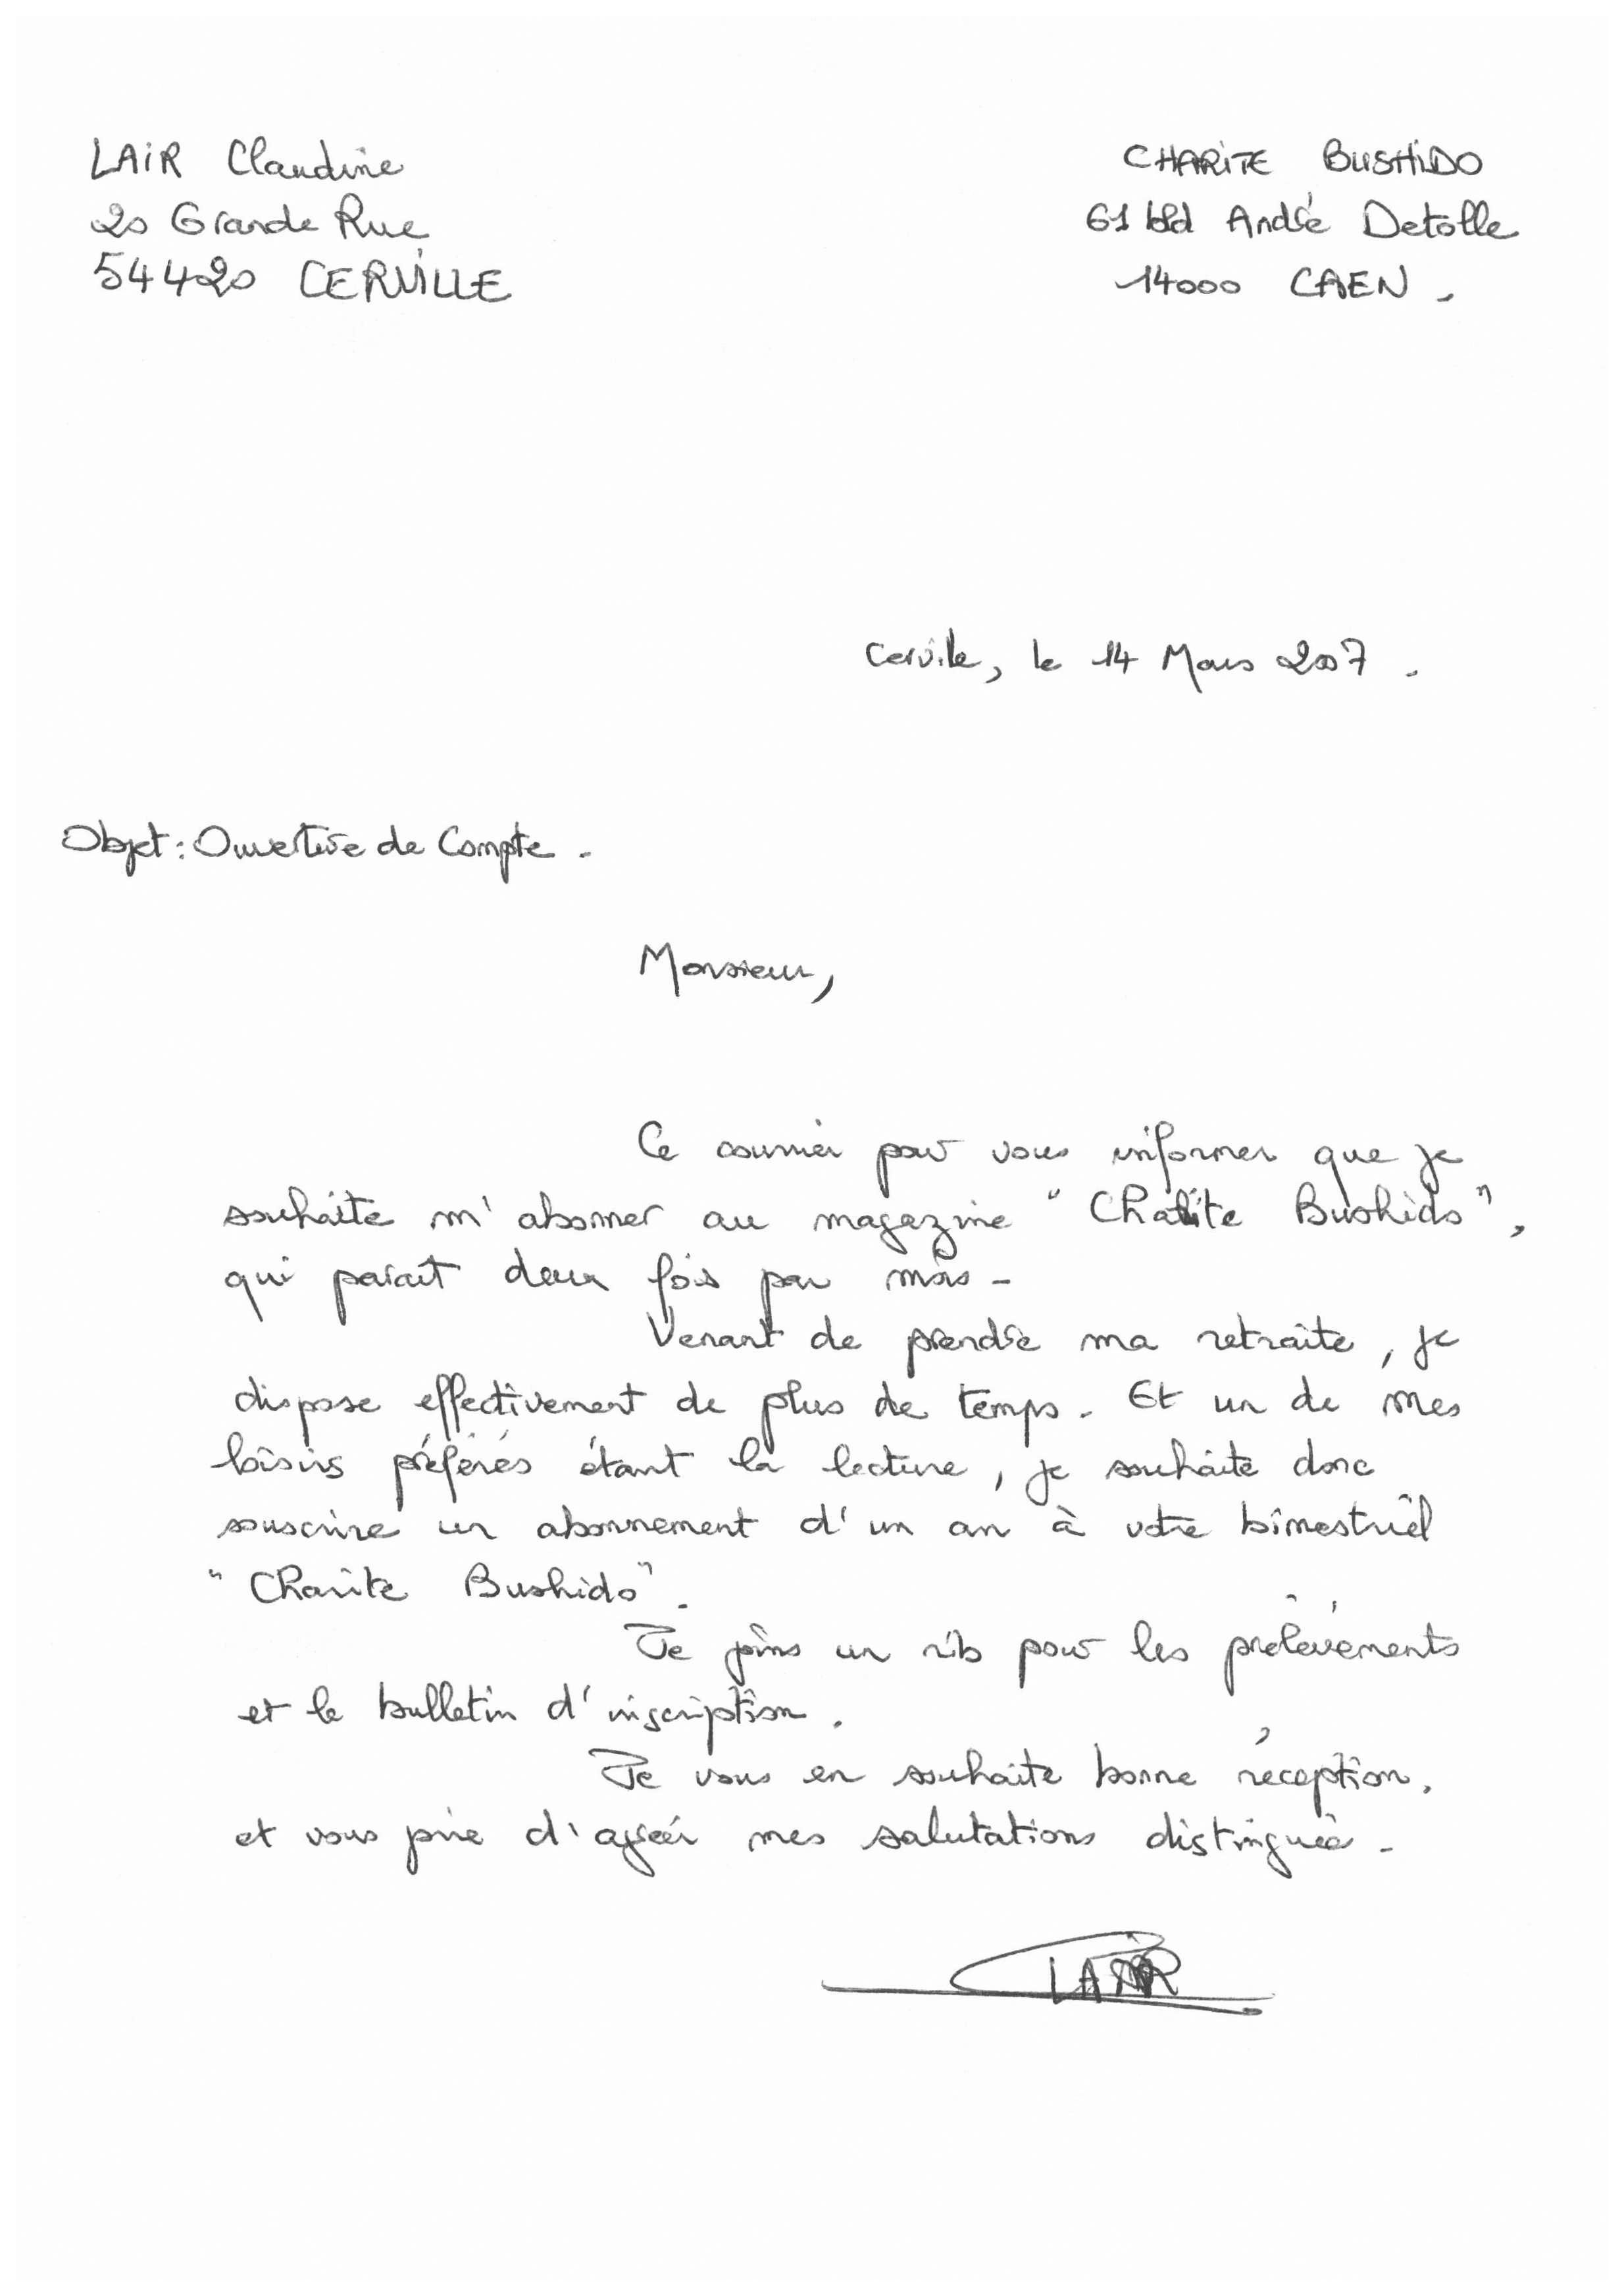 LAIR Claudine
20 Grande Rue
54420 CERVILLE
CHARITE BUSHIDO
61 bld André Detolle
14000 CAEN.
Cerville, le 14 Mars 2007.
Objet : Ouverture de Compte.
Monsieur,
Ce courrier pour vous informer que je
souhaite m'abonner au magazine "Charite Bushido",
qui parait deux fois par mois -
Venant de prendre ma retraite, je
dispose effectivement de plus de temps. Et un de mes
loisirs préférés étant la lecture, je souhaite donc
souscrire un abonnement d'un an à votre bimestriel
"Charite Bushido".
Je joins un rib pour les prélèvements
et le bulletin d'inscription.
Je vous en souhaite bonne réception,
et vous prie d'agréer mes salutations distinguées -
LAIR